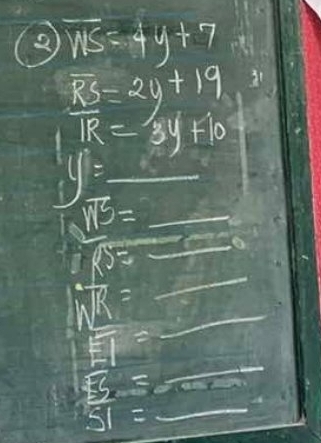 ② W̅S̅ = 4y + 7
R̅S̅ = 2y + 19
I̅R̅ = 3y + 10
y = ____
W̅S̅ = ____
R̅S̅ = ____
W̅R̅ = ____
E̅I̅ = ____
E̅S̅ = ____
S̅I̅ = ____